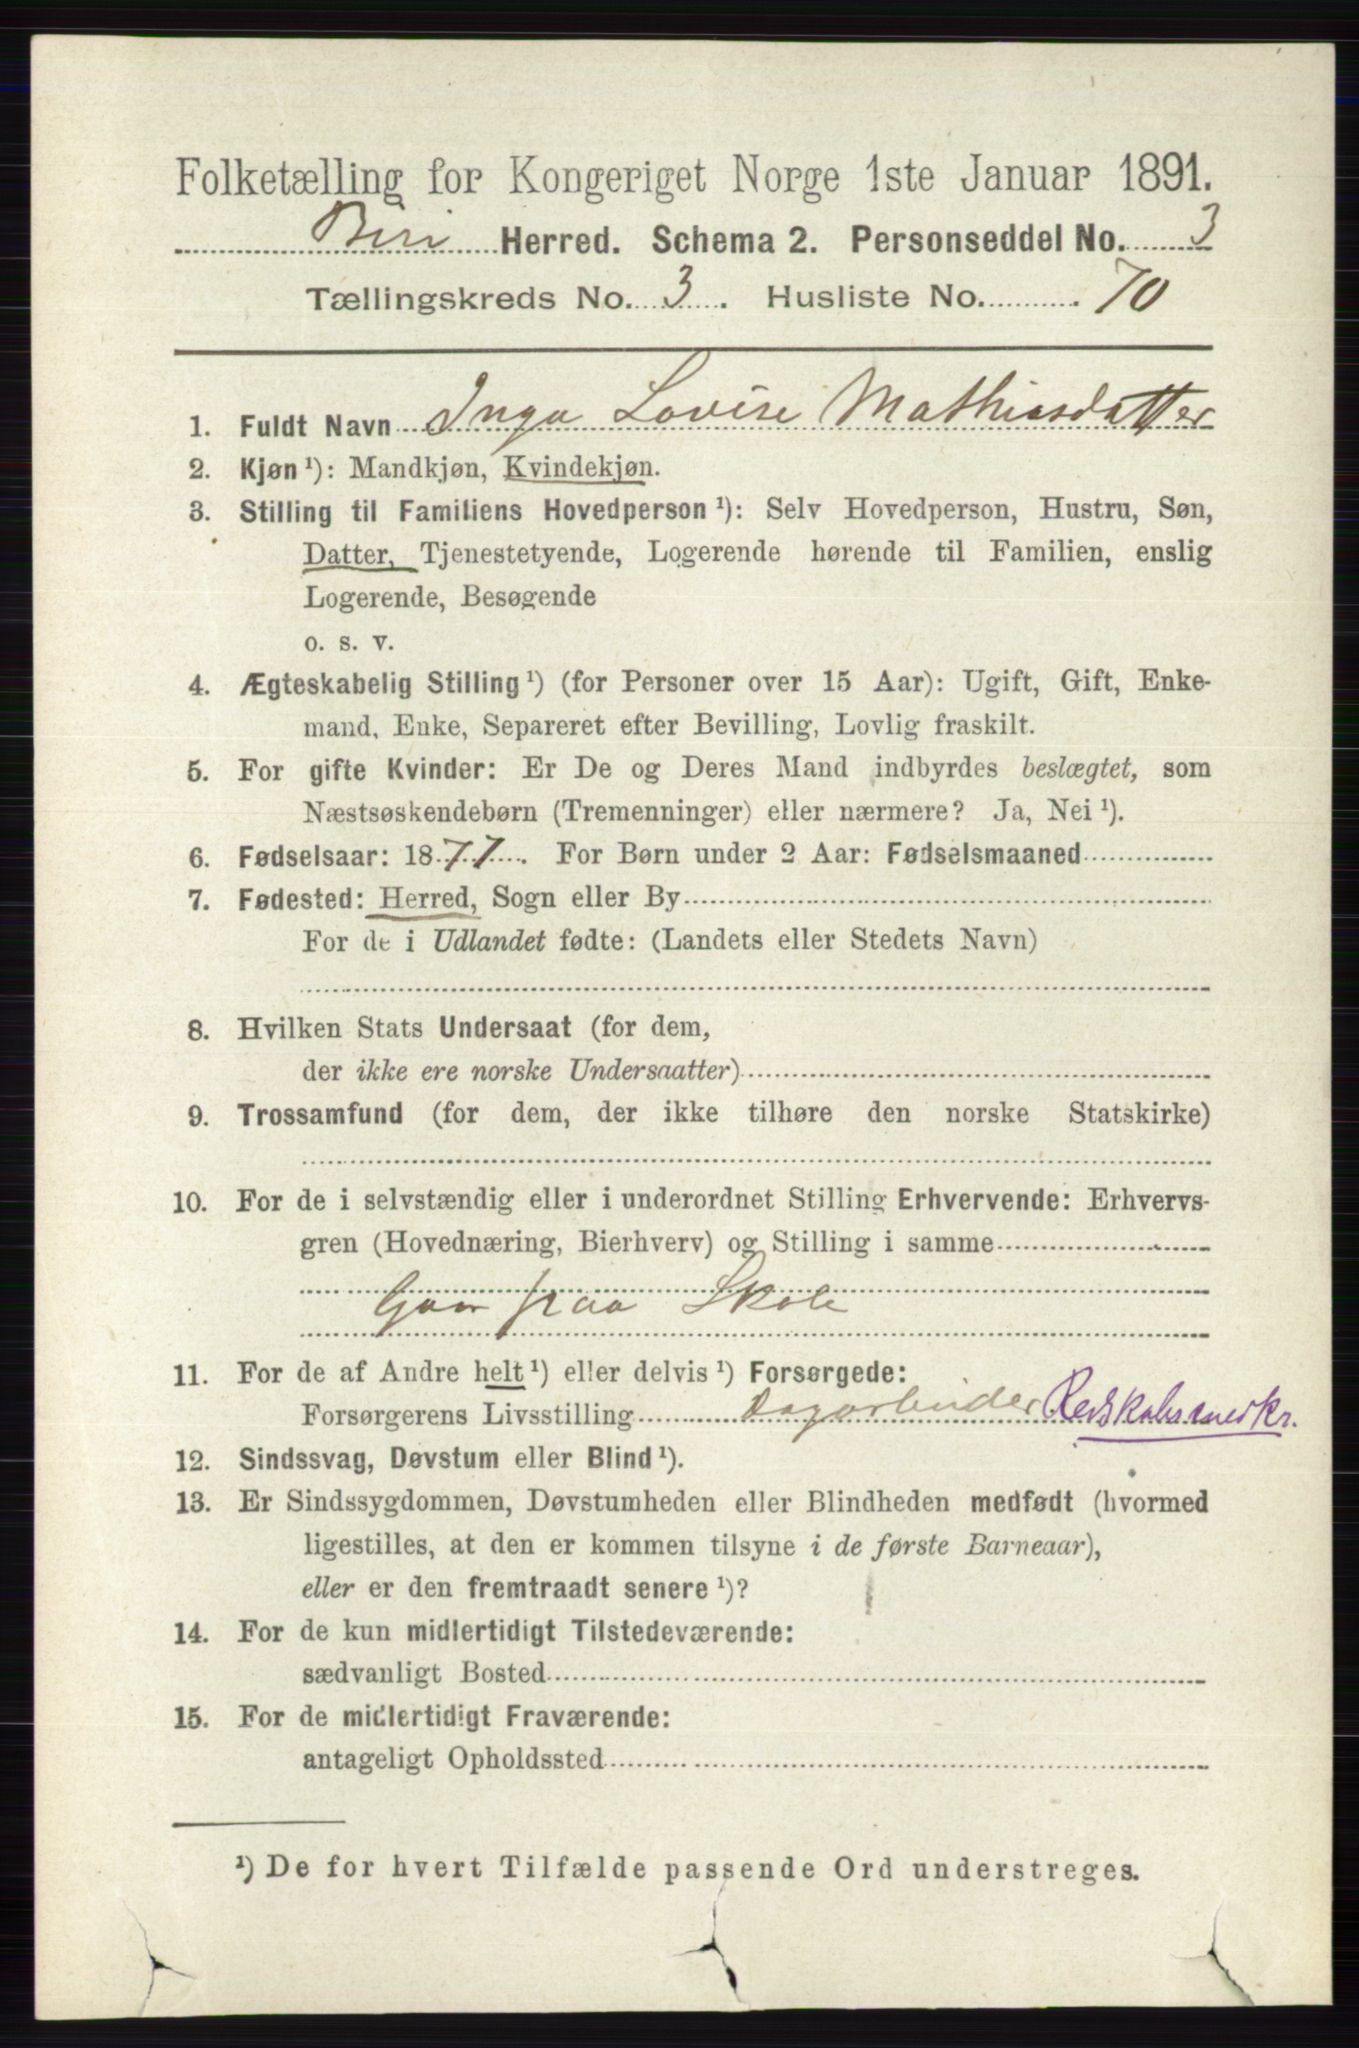 Folketælling for Kongeriget Norge 1ste Januar 1891.
Biri Herred. Schema 2. Personseddel No. 3
Tællingskreds No. 3. Husliste No. 70
1. Fuldt Navn Inga Lovise Mathiasdatter
2. Kjøn¹): Mandkjøn, Kvindekjøn.
3. Stilling til Familiens Hovedperson¹): Selv Hovedperson, Hustru, Søn,
Datter, Tjenestetyende, Logerende hørende til Familien, enslig
Logerende, Besøgende
o. s. v.
4. Ægteskabelig Stilling¹) (for Personer over 15 Aar): Ugift, Gift, Enke-
mand, Enke, Separeret efter Bevilling, Lovlig fraskilt.
5. For gifte Kvinder: Er De og Deres Mand indbyrdes beslægtet, som
Næstsøskendebørn (Tremenninger) eller nærmere? Ja, Nei¹).
6. Fødselsaar: 1877. For Børn under 2 Aar: Fødselsmaaned
7. Fødested: Herred, Sogn eller By
For de i Udlandet fødte: (Landets eller Stedets Navn)
8. Hvilken Stats Undersaat (for dem,
der ikke ere norske Undersaatter)
9. Trossamfund (for dem, der ikke tilhøre den norske Statskirke)
10. For de i selvstændig eller i underordnet Stilling Erhvervende: Erhvervs-
gren (Hovednæring, Bierhverv) og Stilling i samme
Gaar paa Skole
11. For de af Andre helt¹) eller delvis¹) Forsørgede:
Forsørgerens Livsstilling Dagarbeider Redskabssnedkr.
12. Sindssvag, Døvstum eller Blind¹).
13. Er Sindssygdommen, Døvstumheden eller Blindheden medfødt (hvormed
ligestilles, at den er kommen tilsyne i de første Barneaar),
eller er den fremtraadt senere¹)?
14. For de kun midlertidigt Tilstedeværende:
sædvanligt Bosted
15. For de midlertidigt Fraværende:
antageligt Opholdssted
¹) De for hvert Tilfælde passende Ord understreges.